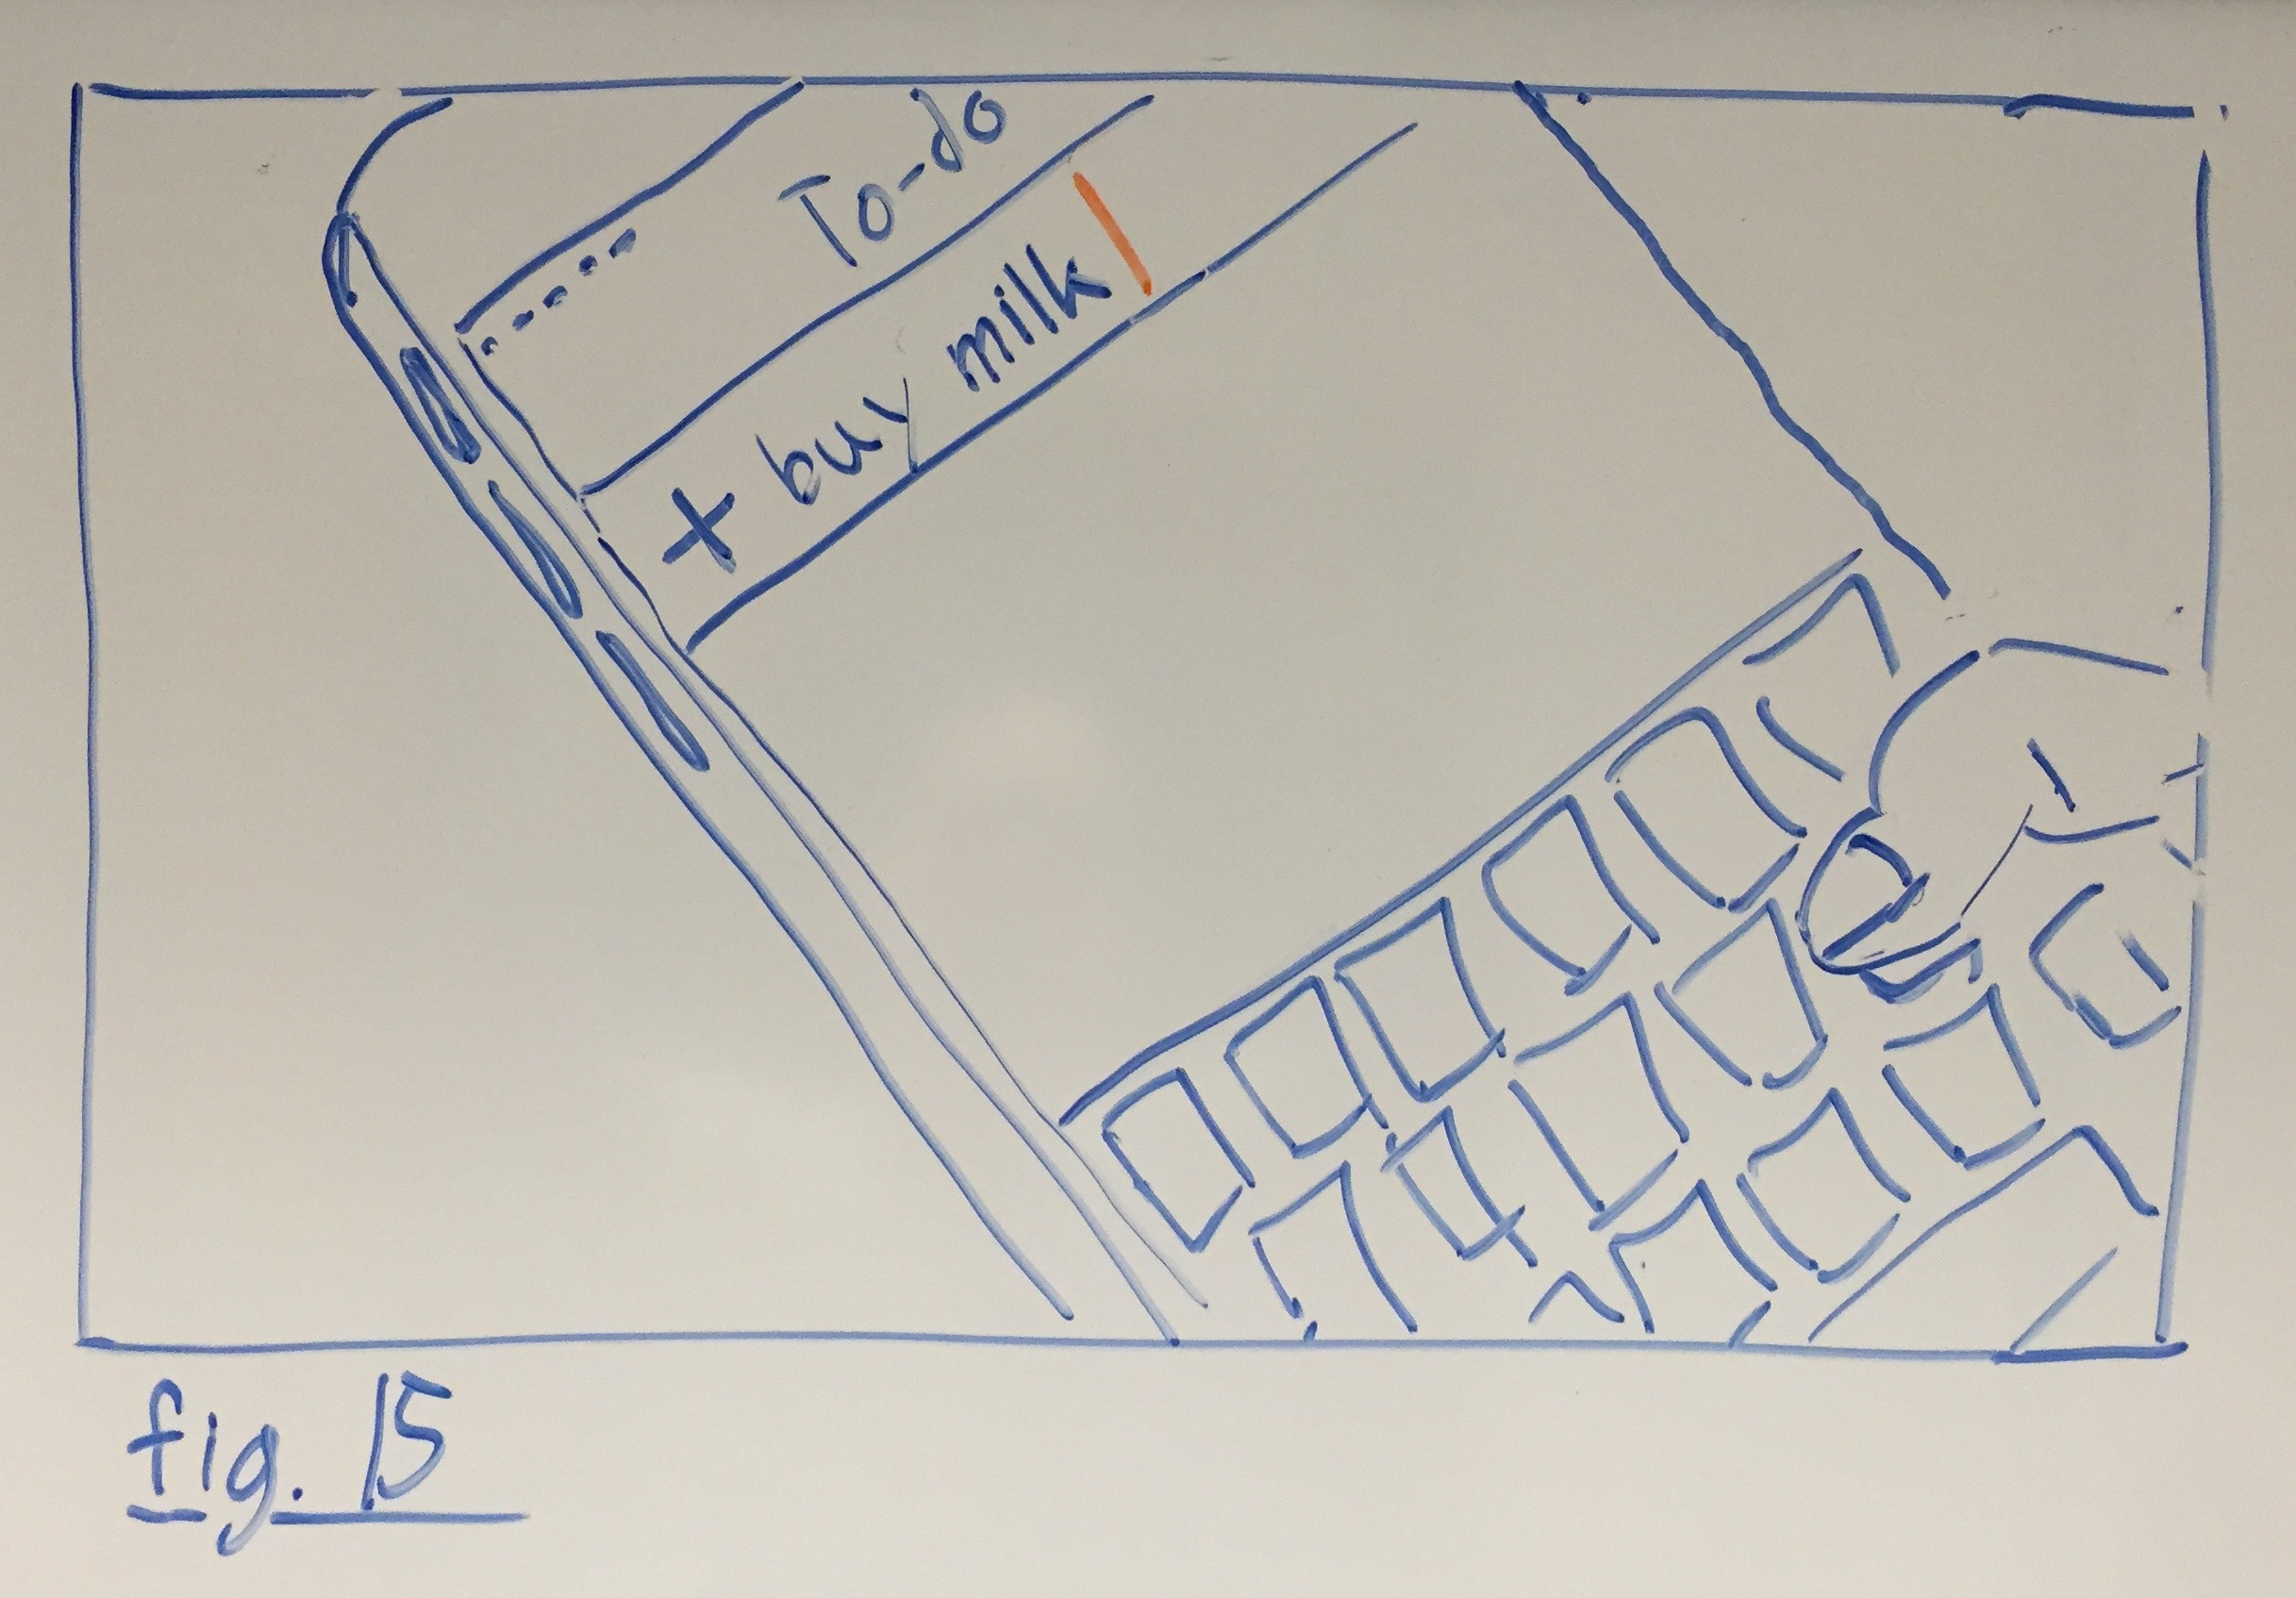 To-do
+ buy milk
fig. 15